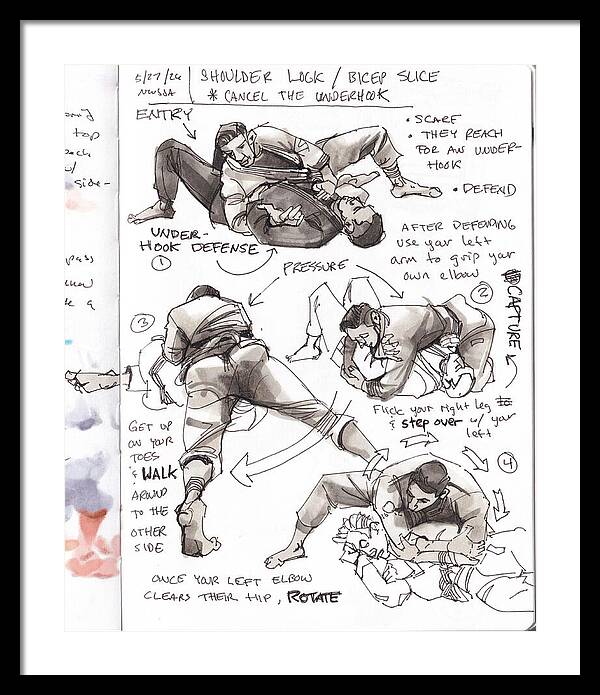 5/27/26
NWSDA
SHOULDER LOCK / BICEP SLICE
* CANCEL THE UNDERHOOK
ENTRY
• SCARF
• THEY REACH
FOR AN UNDER-
HOOK
• DEFEND
UNDER-
HOOK DEFENSE
1
AFTER DEFENDING
use your left
arm to grip your
own elbow
PRESSURE
2
CAPTURE
Flick your right leg to
& step over w/ your
left
3
GET UP
ON YOUR
TOES
& WALK
AROUND
TO THE
OTHER
SIDE
4
ONCE YOUR LEFT ELBOW
CLEARS THEIR HIP, ROTATE
top
w/
side-
pass
a